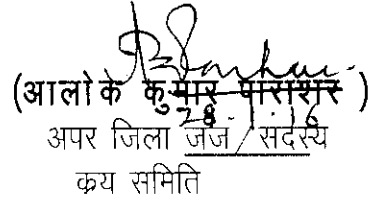 (आलोक कुमार पाराशर)
28-1-16
अपर जिला जज / सदस्य
क्रय समिति